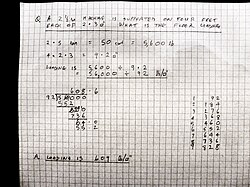 Q A 2½ TON MACHINE IS SUPPORTED ON FOUR FEET
EACH OF 2·3 □" WHAT IS THE FLOOR LOADING
2·5 TON = 50 CWT = 5,600 lb
4 × 2·3 = 9·2 □"
LOADING IS 5600 ÷ 9·2
= 56,000 ÷ 92 lb/□"
608·6
92 56000
552
800
736
64 0
55 2
1 92
2 184
3 276
4 368
5 460
6 552
7 644
8 736
9 828
A. LOADING IS 609 lb/□"